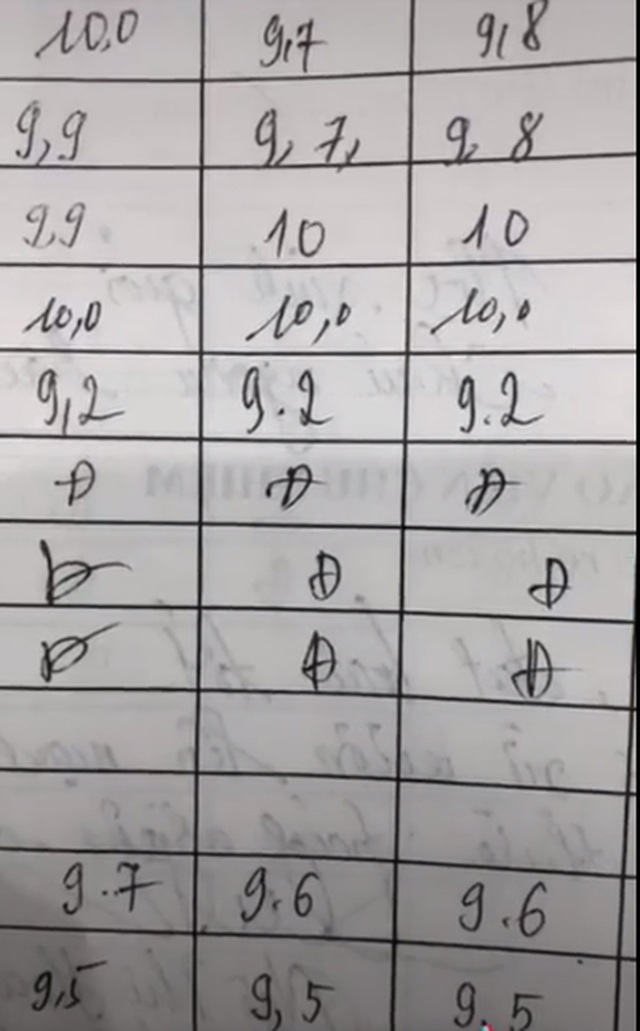 10,0 9,7 9,8
9,9 9,7, 9,8
9,9 10 10
10,0 10,0 10,0
9,2 9.2 9.2
Đ Đ Đ
Đ Đ Đ
Đ Đ Đ
9.7 9.6 9.6
9,5 9,5 9.5